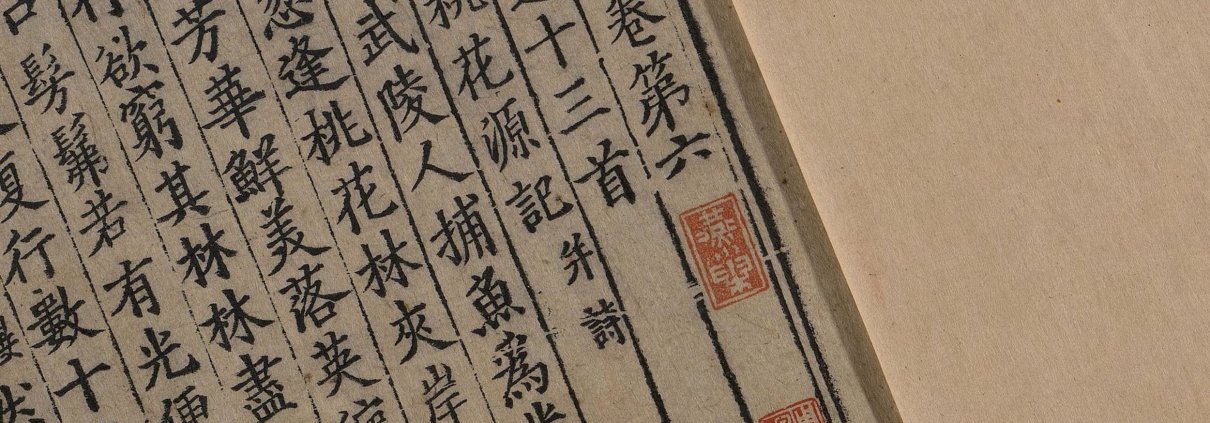 卷第六
十三首
桃花源記并詩
武陵人捕魚爲業
忽逢桃花林夾岸
芳華鮮美落英繽
欲窮其林林盡
髣髴若有光便
復行數十